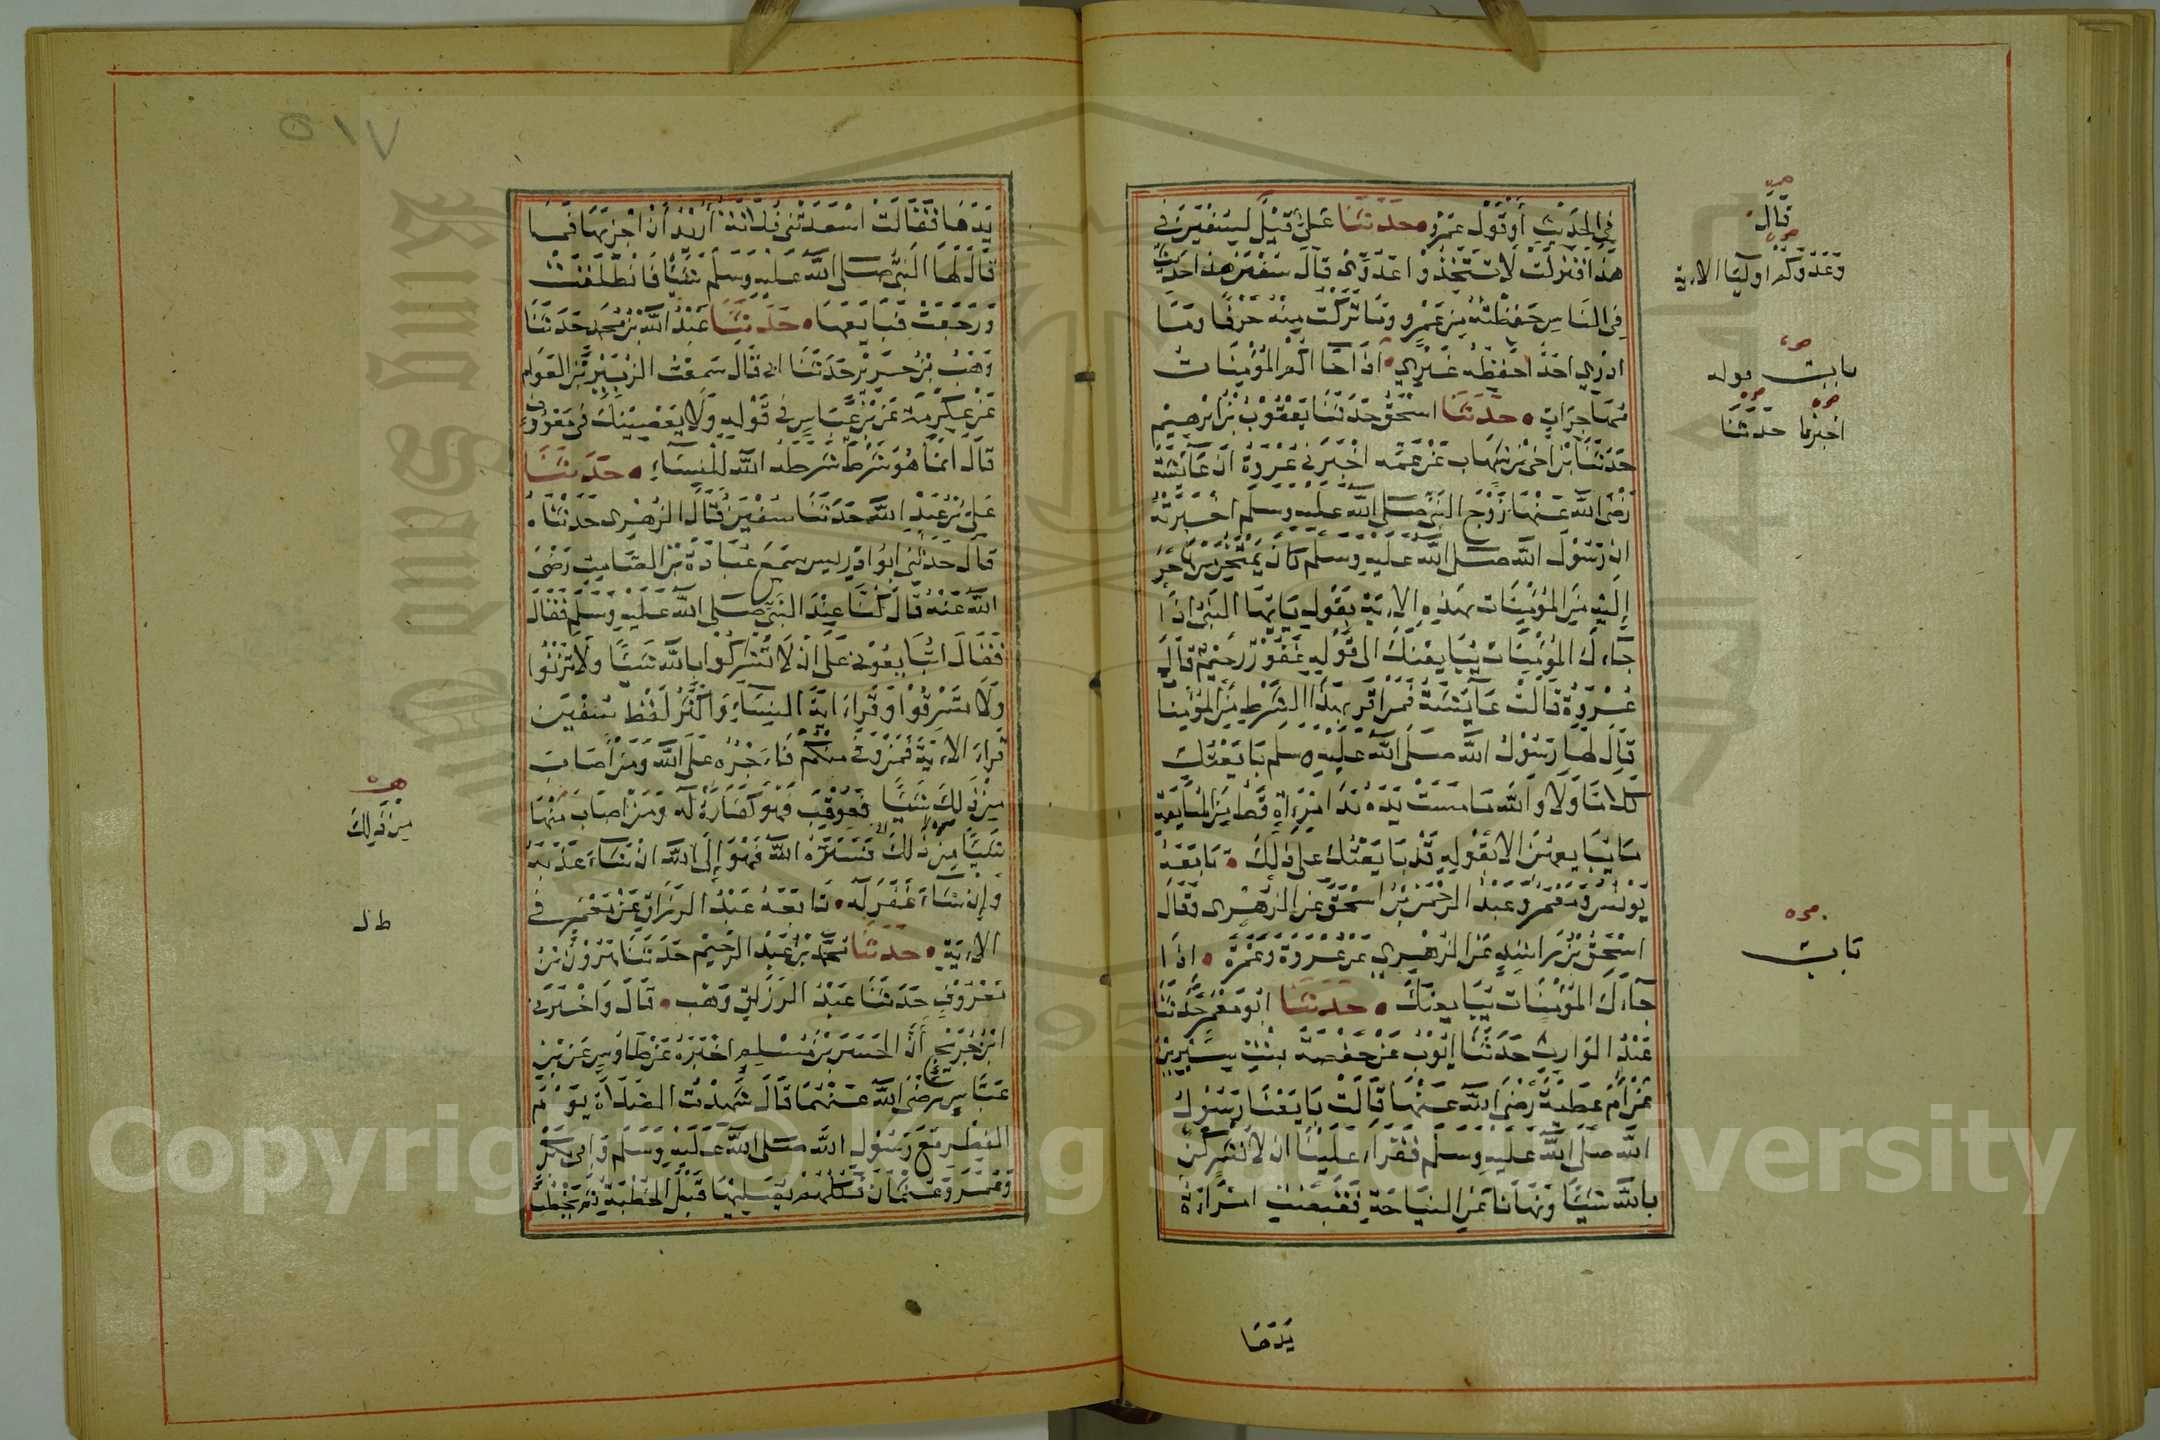 في الحديث أو قول عمرو حدثنا علي قيل لسفين في
هذا فنزلت لا تتخذوا عدوي قال سفين هذا حديث
في الناس حفظته من عمرو وما تركت منه حرفا وما
ادري احدا حفظه غيري اذا جاكم المؤمنات
مهاجرات حدثنا اسحق حدثنا يعقوب بن ابرهيم
حدثنا بن اخي بن شهاب عن عمه اخبرني عروة ان عائشة
رضي الله عنها زوج النبي صلى الله عليه وسلم اخبرته
ان رسول الله صلى الله عليه وسلم كان يمتحن من هاجر
إليه من المؤمنات بهذه الاية بقوله يايها النبي اذا
جاءك المؤمنات يبايعنك الى قوله غفور رحيم قال
عروة قالت عايشة فمن اقر بهذا الشرط من المؤمنات
قال لها رسول الله صلى الله عليه وسلم بايعتك
كلاما ولا والله ما مست يده يد امراة قط من المبايعة
ما يبايعهن الا بقوله قد بايعتك على ذلك تابعه
يونس ومعمر وعبد الرحمن بن اسحق عن الزهري وقال
اسحق بن راشد عن الزهري عن عروة وعمرة اذا
جاءك المؤمنات يبايعنك حدثنا ابو معمر حدثنا
عبد الوارث حدثنا ايوب عن حفصة بنت سيرين
عن ام عطية رضي الله عنها قالت بايعنا رسول
الله صلى الله عليه وسلم فقرا علينا ان لا تشركن
بالله شيئا ونهانا عن النياحة فقبضت امراة
يدها
قال
وعدوكم اوليا الاية
باب قوله
اخبرنا حدثنا
باب
٥١٧
يدها فقالت اسعدتني فلانة أريد أن اجزيها فما
قال لها النبي صلى الله عليه وسلم شيئا فانطلقت
ورجعت فبايعها حدثنا عبد الله بن محمد حدثنا
وهب بن جرير حدثنا ابي قال سمعت الزبير بن العوام
عن عكرمة عن بن عباس في قوله ولا يعصينك في معروف
قال انما هو شرط شرطه الله للنساء حدثنا
علي بن عبد الله حدثنا سفين قال الزهري حدثناه
قال حدثني ابو ادريس سمع عبادة بن الصامت رضي
الله عنه قال كنا عند النبي صلى الله عليه وسلم فقال
فقال اتبايعوني على ان لا تشركوا بالله شيئا ولا تزنوا
ولا تسرقوا وقراء اية النساء واكثر لفظ سفين
قراء الاية فمن وفى منكم فاجره على الله ومن اصاب
من ذلك شيئا فعوقب فهو كفارة له ومن اصاب منها
شيئا من ذلك فستره الله فهو إلى الله ان شاء عذبه
وإن شاء غفر له تابعه عبد الرزاق عن معمر في
الاية حدثنا محمد بن عبد الرحيم حدثنا هرون بن
معروف حدثنا عبد الرزاق وهب قال واخبرني
ابن جريج أن الحسن بن مسلم اخبره عن طاوس عن بن
عباس رضي الله عنهما قال شهدت الصلاة يوم
الفطر مع رسول الله صلى الله عليه وسلم وابي بكر
وعمر وعثمان فكلهم يصليها قبل الخطبة ثم يخطب
من ذلك
Copyright © King Saud University
King Saud
1957